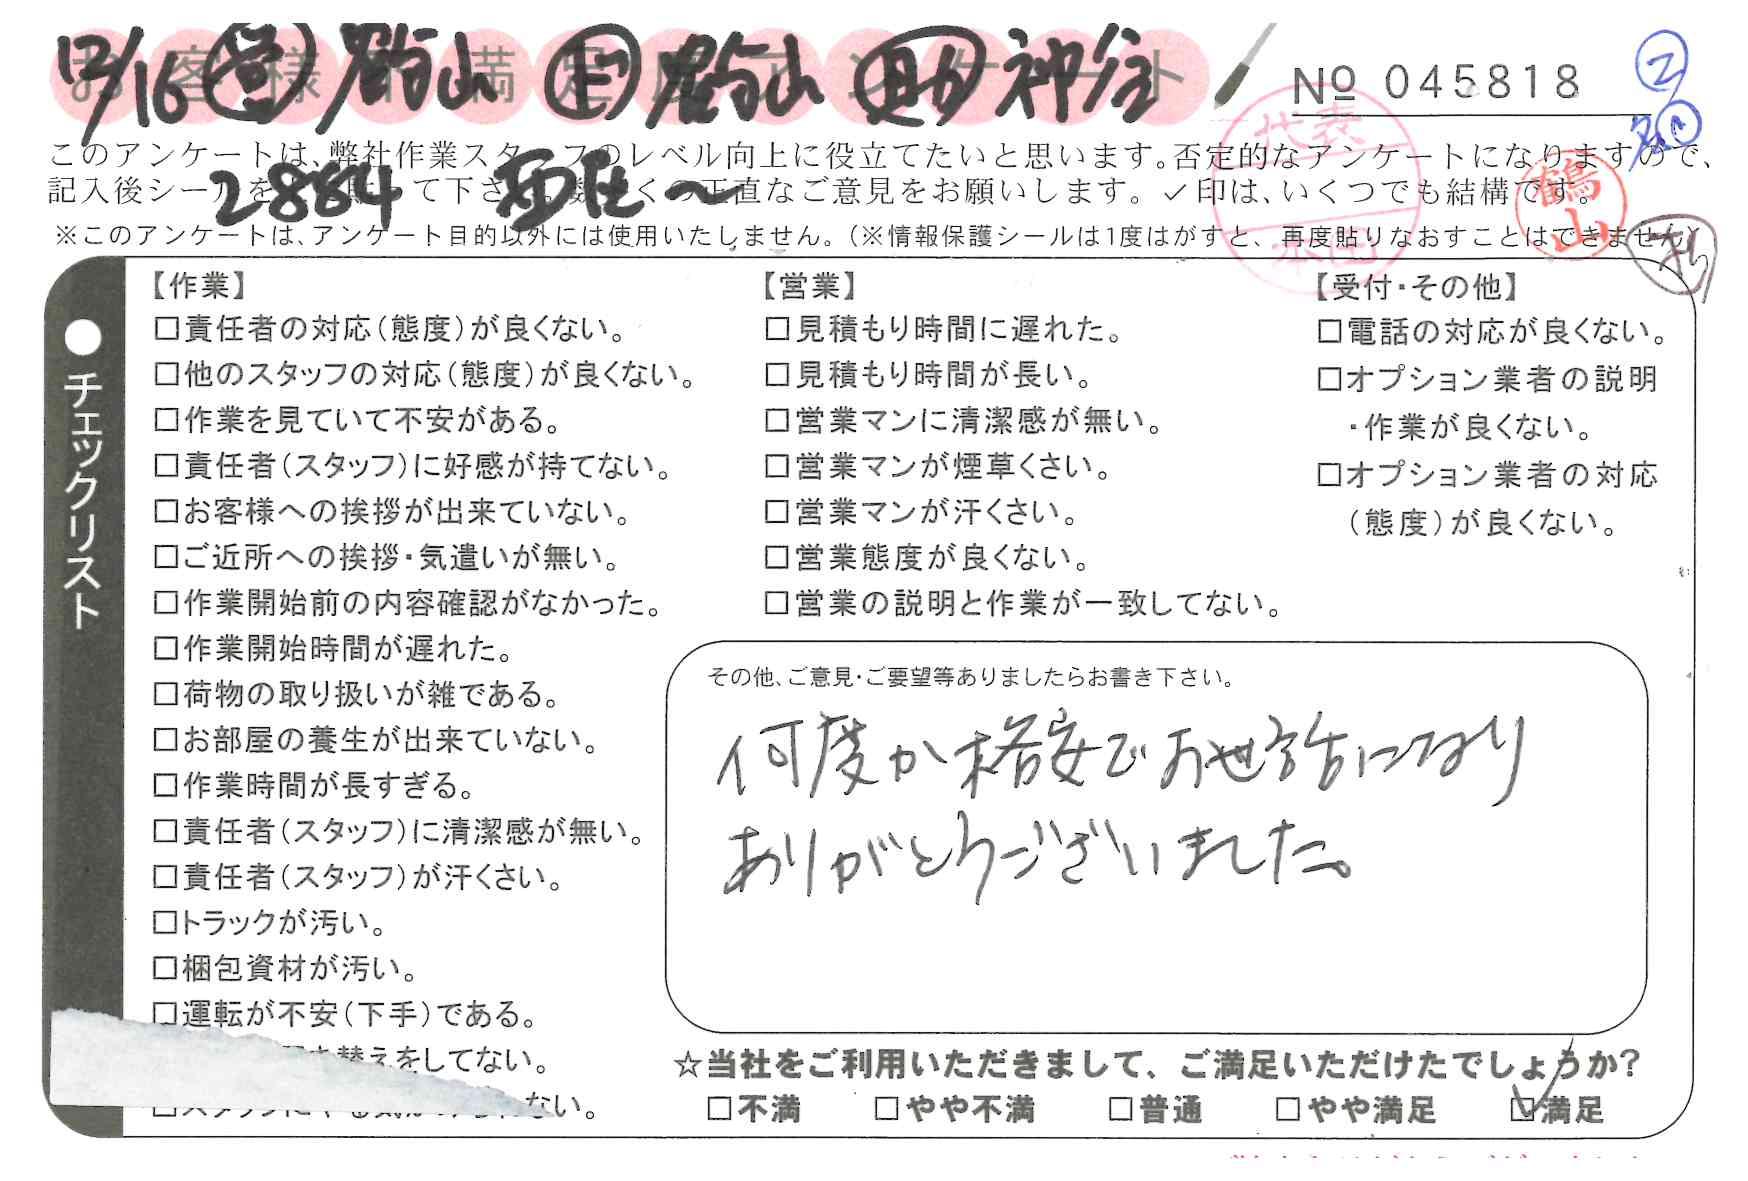 お客様不満足度アンケート
12/16 営 鶴山 上 鶴山 助 神谷
No 045818
2
代表
本田
鶴山
このアンケートは、弊社作業スタッフのレベル向上に役立てたいと思います。否定的なアンケートになりますので、
記入後シールを して下さ 数 くの正直なご意見をお願いします。✓印は、いくつでも結構です。
2884
※このアンケートは、アンケート目的以外には使用いたしません。(※情報保護シールは1度はがすと、再度貼りなおすことはできません)
●チェックリスト
【作業】
□責任者の対応(態度)が良くない。
□他のスタッフの対応(態度)が良くない。
□作業を見ていて不安がある。
□責任者(スタッフ)に好感が持てない。
□お客様への挨拶が出来ていない。
□ご近所への挨拶・気遣いが無い。
□作業開始前の内容確認がなかった。
□作業開始時間が遅れた。
□荷物の取り扱いが雑である。
□お部屋の養生が出来ていない。
□作業時間が長すぎる。
□責任者(スタッフ)に清潔感が無い。
□責任者(スタッフ)が汗くさい。
□トラックが汚い。
□梱包資材が汚い。
□運転が不安(下手)である。
替えをしてない。
□スタッフにやる気が ない。
【営業】
□見積もり時間に遅れた。
□見積もり時間が長い。
□営業マンに清潔感が無い。
□営業マンが煙草くさい。
□営業マンが汗くさい。
□営業態度が良くない。
□営業の説明と作業が一致してない。
【受付・その他】
□電話の対応が良くない。
□オプション業者の説明
・作業が良くない。
□オプション業者の対応
(態度)が良くない。
その他、ご意見・ご要望等ありましたらお書き下さい。
何度か格安でお世話になり
ありがとうございました。
☆当社をご利用いただきまして、ご満足いただけたでしょうか?
□不満 □やや不満 □普通 □やや満足 ☑満足